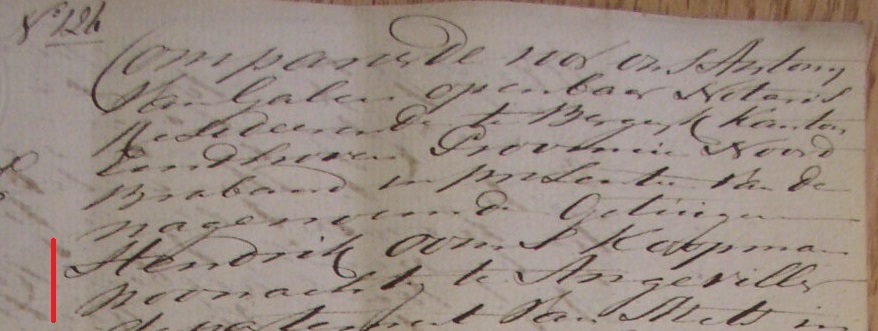 No 126
Compareerde voor ons Antony
Van Galen openbaar Notaris
Resideerende te Bergeyk Kanton
Eindhoven Provincie Noord
Braband in presentie van de
nagenoemde Getuigen
Hendrik Ooms Koopman
woonachtig te Angeviller
departement van